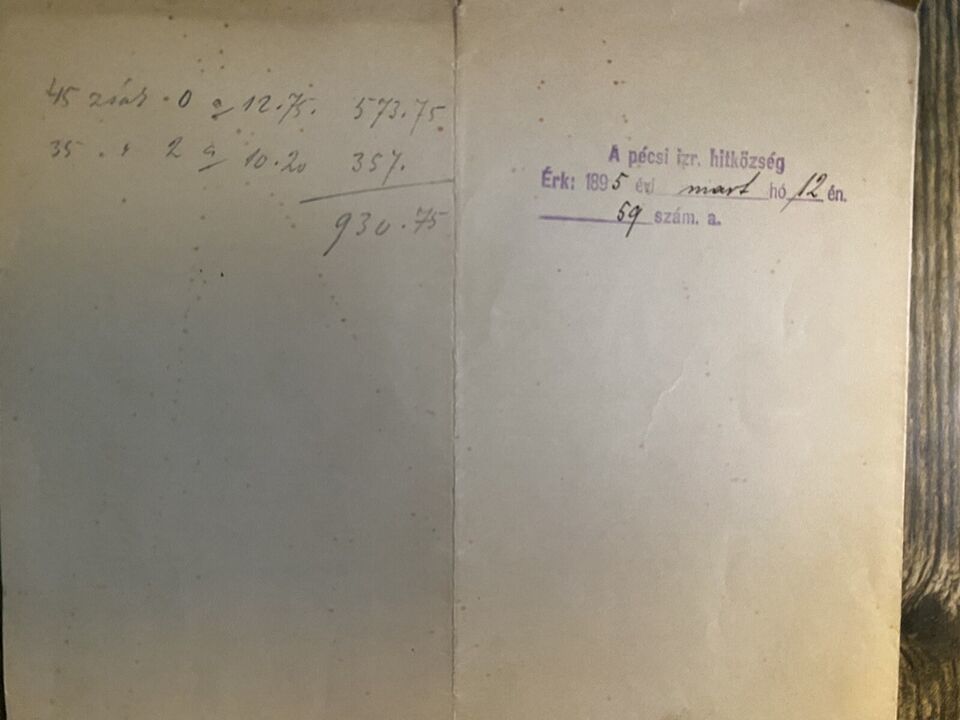 45 zsák 0 a 12.75. 573.75
35 . " 2 a 10.20 357.
930.75
A pécsi izr. hitközség
Érk: 1895 évi mart hó 12 én.
59 szám. a.